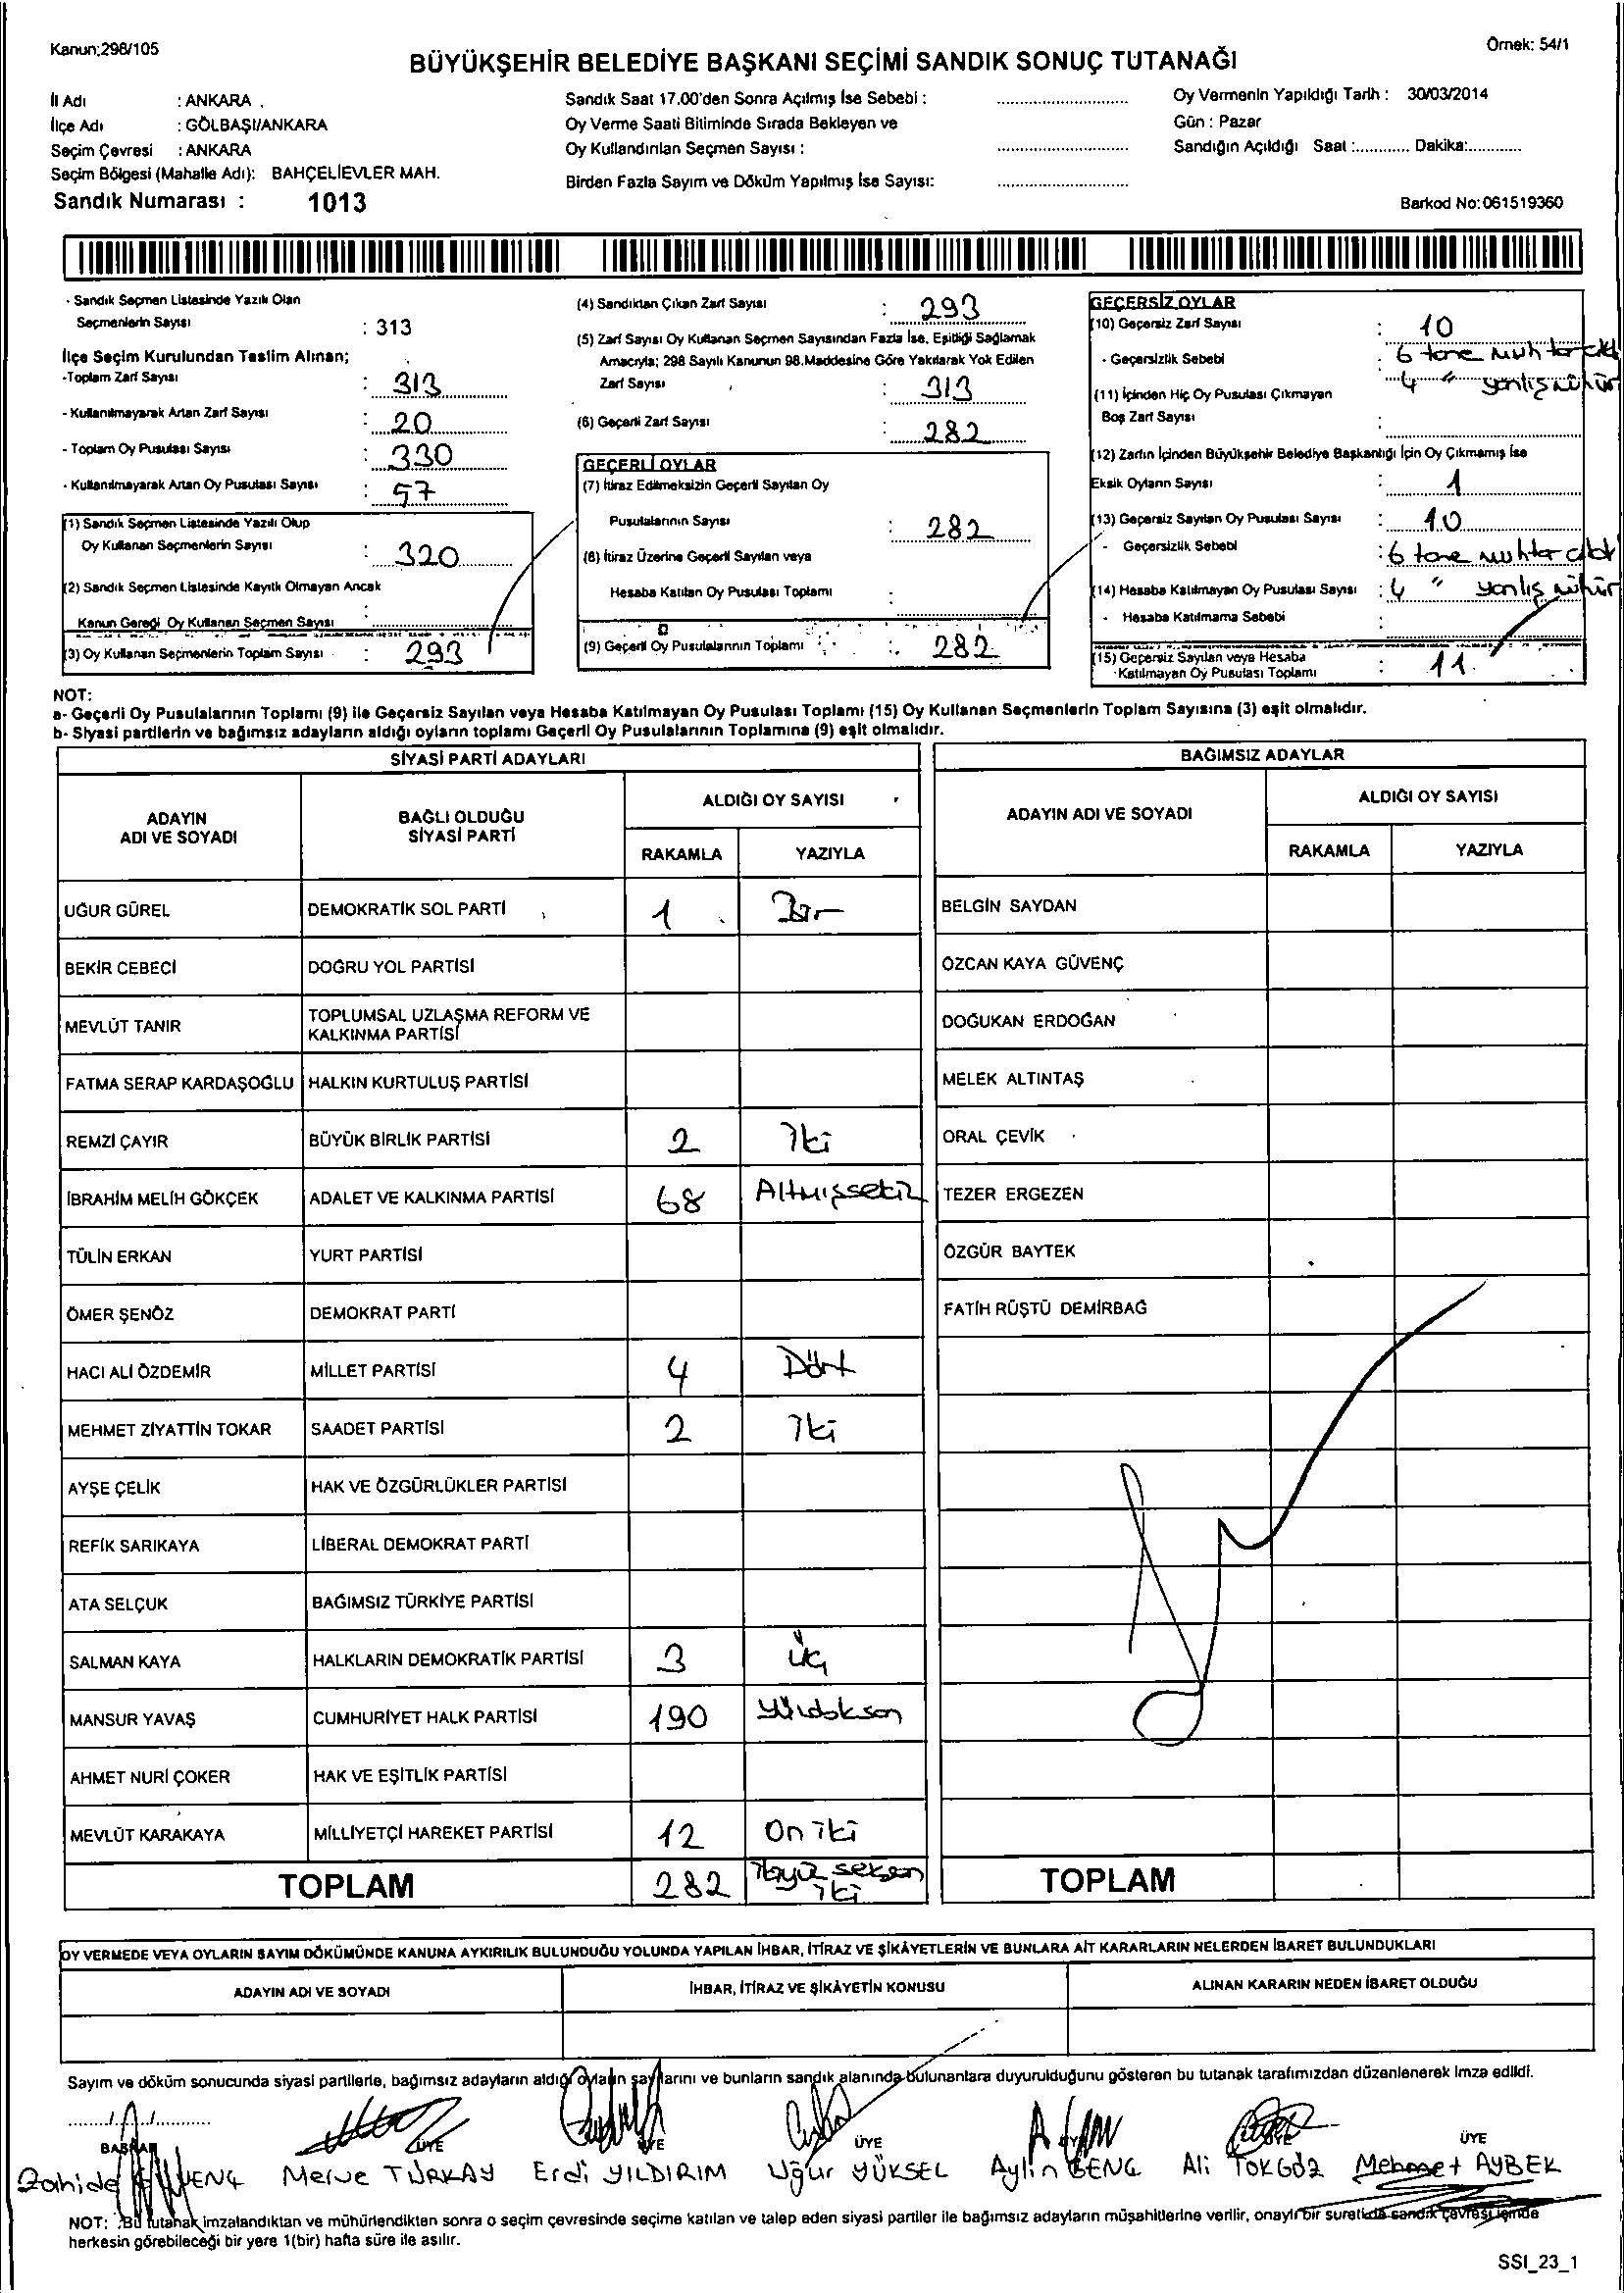 Kanun;298/105
Örnek: 54/1
BÜYÜKŞEHİR BELEDİYE BAŞKANI SEÇİMİ SANDIK SONUÇ TUTANAĞI
İl Adı : ANKARA
İlçe Adı : GÖLBAŞI/ANKARA
Seçim Çevresi : ANKARA
Seçim Bölgesi (Mahalle Adı): BAHÇELİEVLER MAH.
Sandık Numarası : 1013
Sandık Saat 17.00'den Sonra Açılmış İse Sebebi :
Oy Verme Saati Bitiminde Sırada Bekleyen ve
Oy Kullandırılan Seçmen Sayısı :
Birden Fazla Sayım ve Döküm Yapılmış İse Sayısı:
Oy Vermenin Yapıldığı Tarih : 30/03/2014
Gün : Pazar
Sandığın Açıldığı Saat :............ Dakika:...........
Barkod No:061519360
- Sandık Seçmen Listesinde Yazılı Olan
Seçmenlerin Sayısı : 313
İlçe Seçim Kurulundan Teslim Alınan;
-Toplam Zarf Sayısı : 313
- Kullanılmayarak Artan Zarf Sayısı : 20
- Toplam Oy Pusulası Sayısı : 330
- Kullanılmayarak Artan Oy Pusulası Sayısı : 57
(1) Sandık Seçmen Listesinde Yazılı Olup
Oy Kullanan Seçmenlerin Sayısı : 320
(2) Sandık Seçmen Listesinde Kayıtlı Olmayan Ancak
Kanun Gereği Oy Kullanan Seçmen Sayısı :
(3) Oy Kullanan Seçmenlerin Toplam Sayısı : 293
(4) Sandıktan Çıkan Zarf Sayısı : 293
(5) Zarf Sayısı Oy Kullanan Seçmen Sayısından Fazla İse, Eşitliği Sağlamak
Amacıyla; 298 Sayılı Kanunun 98.Maddesine Göre Yakılarak Yok Edilen
Zarf Sayısı : 313
(6) Geçerli Zarf Sayısı : 282
GEÇERLİ OYLAR
(7) İtiraz Edilmeksizin Geçerli Sayılan Oy
Pusulalarının Sayısı : 282
(8) İtiraz Üzerine Geçerli Sayılan veya
Hesaba Katılan Oy Pusulası Toplamı :
(9) Geçerli Oy Pusulalarının Toplamı : 282
GEÇERSİZ OYLAR
(10) Geçersiz Zarf Sayısı : 10
- Geçersizlik Sebebi : 6 tane muhtar
4 " yanlış mühür
(11) İçinden Hiç Oy Pusulası Çıkmayan
Boş Zarf Sayısı :
(12) Zarfın İçinden Büyükşehir Belediye Başkanlığı İçin Oy Çıkmamış İse
Eksik Oyların Sayısı : 1
(13) Geçersiz Sayılan Oy Pusulası Sayısı : 10
- Geçersizlik Sebebi : 6 tane muhtar
(14) Hesaba Katılmayan Oy Pusulası Sayısı : 4 " yanlış mühür
- Hesaba Katılmama Sebebi :
(15) Geçersiz Sayılan veya Hesaba
Katılmayan Oy Pusulası Toplamı : 11
NOT:
a- Geçerli Oy Pusulalarının Toplamı (9) ile Geçersiz Sayılan veya Hesaba Katılmayan Oy Pusulası Toplamı (15) Oy Kullanan Seçmenlerin Toplam Sayısına (3) eşit olmalıdır.
b- Siyasi partilerin ve bağımsız adayların aldığı oyların toplamı Geçerli Oy Pusulalarının Toplamına (9) eşit olmalıdır.
SİYASİ PARTİ ADAYLARI
ADAYIN ADI VE SOYADI BAĞLI OLDUĞU SİYASİ PARTİ ALDIĞI OY SAYISI
RAKAMLA YAZIYLA
UĞUR GÜREL DEMOKRATİK SOL PARTİ 1 Bir
BEKİR CEBECİ DOĞRU YOL PARTİSİ
MEVLÜT TANIR TOPLUMSAL UZLAŞMA REFORM VE KALKINMA PARTİSİ
FATMA SERAP KARDAŞOĞLU HALKIN KURTULUŞ PARTİSİ
REMZİ ÇAYIR BÜYÜK BİRLİK PARTİSİ 2 İki
İBRAHİM MELİH GÖKÇEK ADALET VE KALKINMA PARTİSİ 68 Altmışsekiz
TÜLİN ERKAN YURT PARTİSİ
ÖMER ŞENÖZ DEMOKRAT PARTİ
HACI ALİ ÖZDEMİR MİLLET PARTİSİ 4 Dört
MEHMET ZİYATTİN TOKAR SAADET PARTİSİ 2 İki
AYŞE ÇELİK HAK VE ÖZGÜRLÜKLER PARTİSİ
REFİK SARIKAYA LİBERAL DEMOKRAT PARTİ
ATA SELÇUK BAĞIMSIZ TÜRKİYE PARTİSİ
SALMAN KAYA HALKLARIN DEMOKRATİK PARTİSİ 3 Üç
MANSUR YAVAŞ CUMHURİYET HALK PARTİSİ 190 Yüzdoksan
AHMET NURİ ÇOKER HAK VE EŞİTLİK PARTİSİ
MEVLÜT KARAKAYA MİLLİYETÇİ HAREKET PARTİSİ 12 On iki
TOPLAM 282 İkiyüz seksen iki
BAĞIMSIZ ADAYLAR
ADAYIN ADI VE SOYADI ALDIĞI OY SAYISI
RAKAMLA YAZIYLA
BELGİN SAYDAN
ÖZCAN KAYA GÜVENÇ
DOĞUKAN ERDOĞAN
MELEK ALTINTAŞ
ORAL ÇEVİK
TEZER ERGEZEN
ÖZGÜR BAYTEK
FATİH RÜŞTÜ DEMİRBAĞ
TOPLAM
OY VERMEDE VEYA OYLARIN SAYIM DÖKÜMÜNDE KANUNA AYKIRILIK BULUNDUĞU YOLUNDA YAPILAN İHBAR, İTİRAZ VE ŞİKÂYETLERİN VE BUNLARA AİT KARARLARIN NELERDEN İBARET BULUNDUKLARI
ADAYIN ADI VE SOYADI İHBAR, İTİRAZ VE ŞİKÂYETİN KONUSU ALINAN KARARIN NEDEN İBARET OLDUĞU
Sayım ve döküm sonucunda siyasi partilerle, bağımsız adayların aldığı oyların sayılarını ve bunların sandık alanında bulunanlara duyurulduğunu gösteren bu tutanak tarafımızdan düzenlenerek imza edildi.
BAŞKAN ÜYE ÜYE ÜYE ÜYE ÜYE ÜYE
Zahide Merve TÜRKAY Erdi YILDIRIM Uğur YÜKSEL Aylin GENÇ Ali TOKGÖZ Mehmet AYBEK
NOT: Bu tutanak imzalandıktan ve mühürlendikten sonra o seçim çevresinde seçime katılan ve talep eden siyasi partiler ile bağımsız adayların müşahitlerine verilir, onaylı bir suretide sandık çevresi içinde
herkesin görebileceği bir yere 1(bir) hafta süre ile asılır.
SSI_23_1